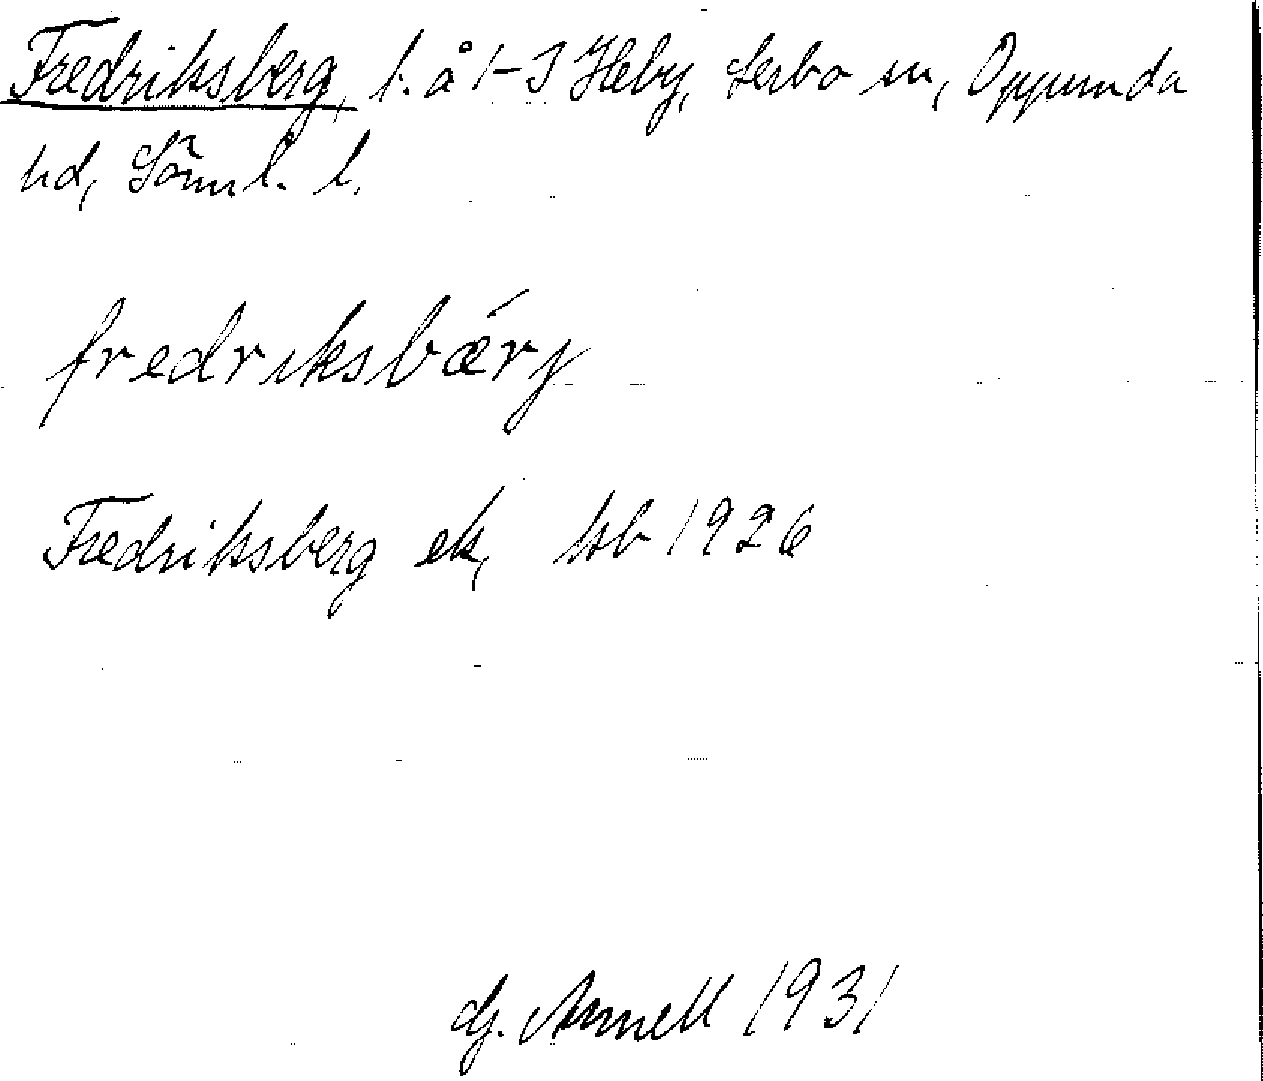 Fredriksberg, l. å 1-3 Heby, Lerbo sn, Oppunda
hd, Sörml. l.
fredriksbærj
Fredriksberg ek, kb 1926
Dj. Annell 1931